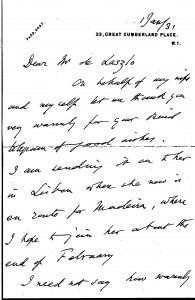 1 Jan/31
PADD. 4687.
33, GREAT CUMBERLAND PLACE.
W.1.
Dear Mr de Laszlo
On behalf of my wife
and myself let me thank you
very warmly for your kind
telegram of good wishes.
I am sending it on to her
in Lisbon where she now is
en route for Madeira, where
I hope to join her about the
end of February
I need not say how warmly